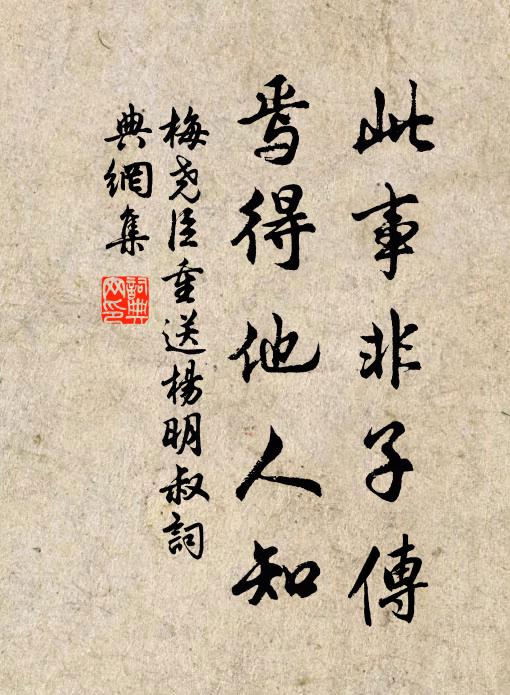 此事非子傳
焉得他人知
梅尧臣重送楊明叔詞
典網集
詞典
网印